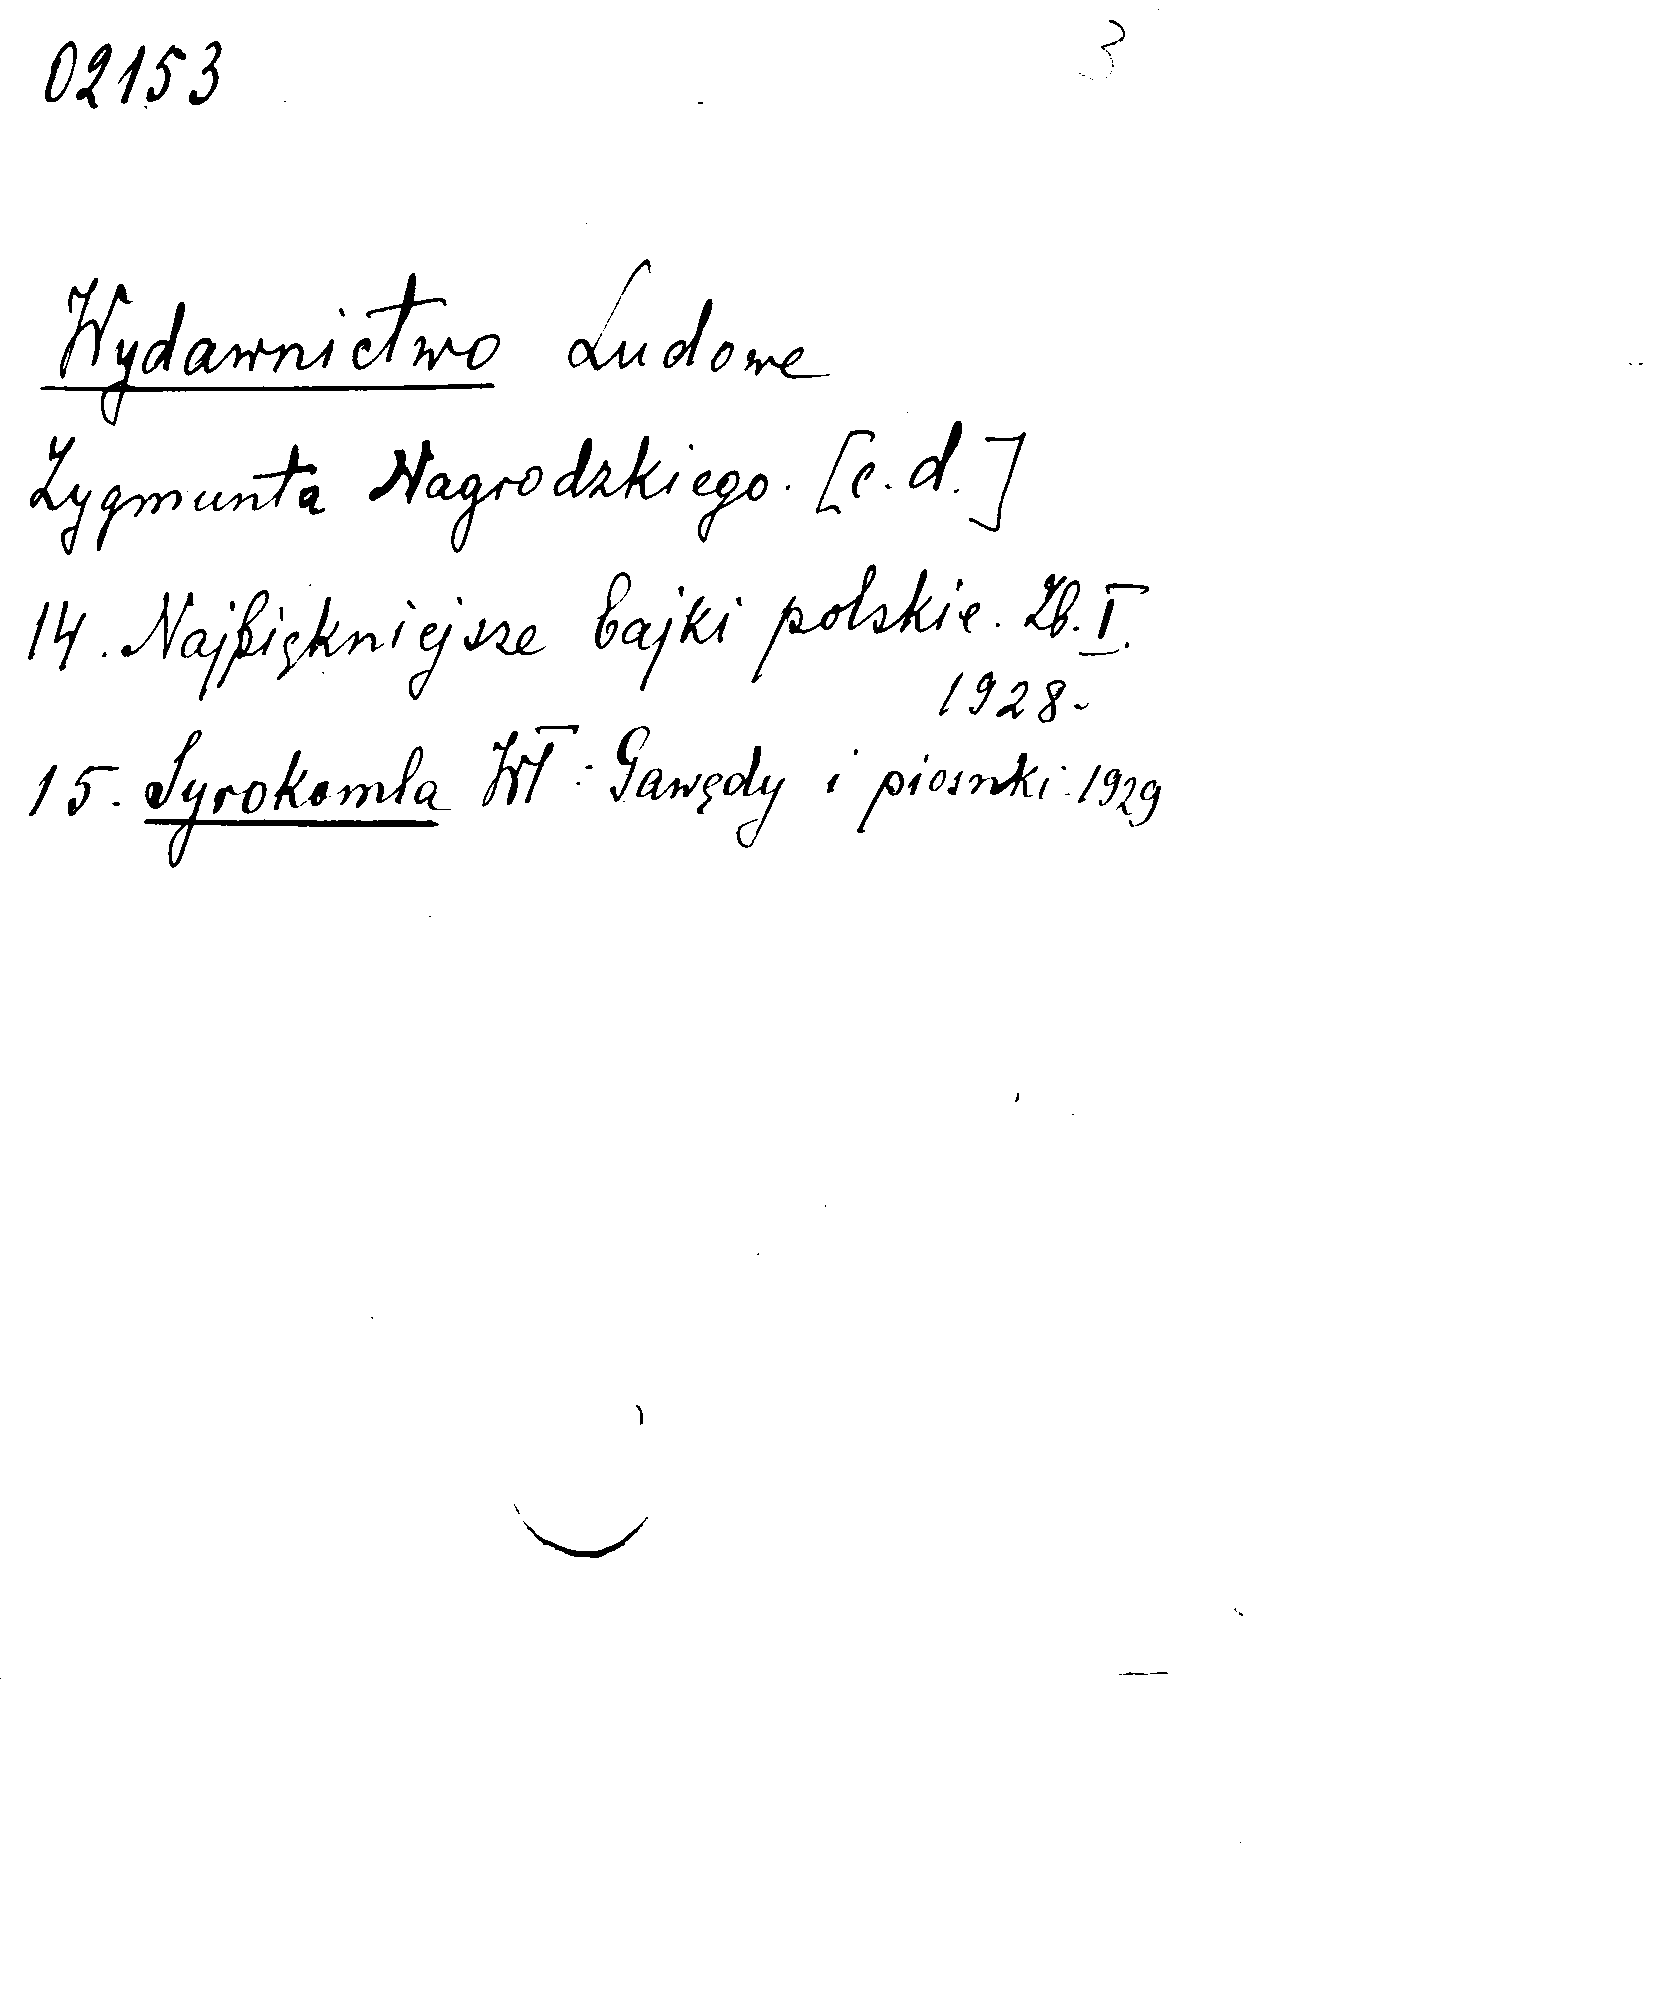 02153 3
Wydawnictwo Ludowe
Zygmunta Nagrodzkiego. [c.d.]
14. Najpiękniejsze bajki polskie. Zb. I.
1928.
15. Syrokomla Wł: Gawędy i piosnki. 1929